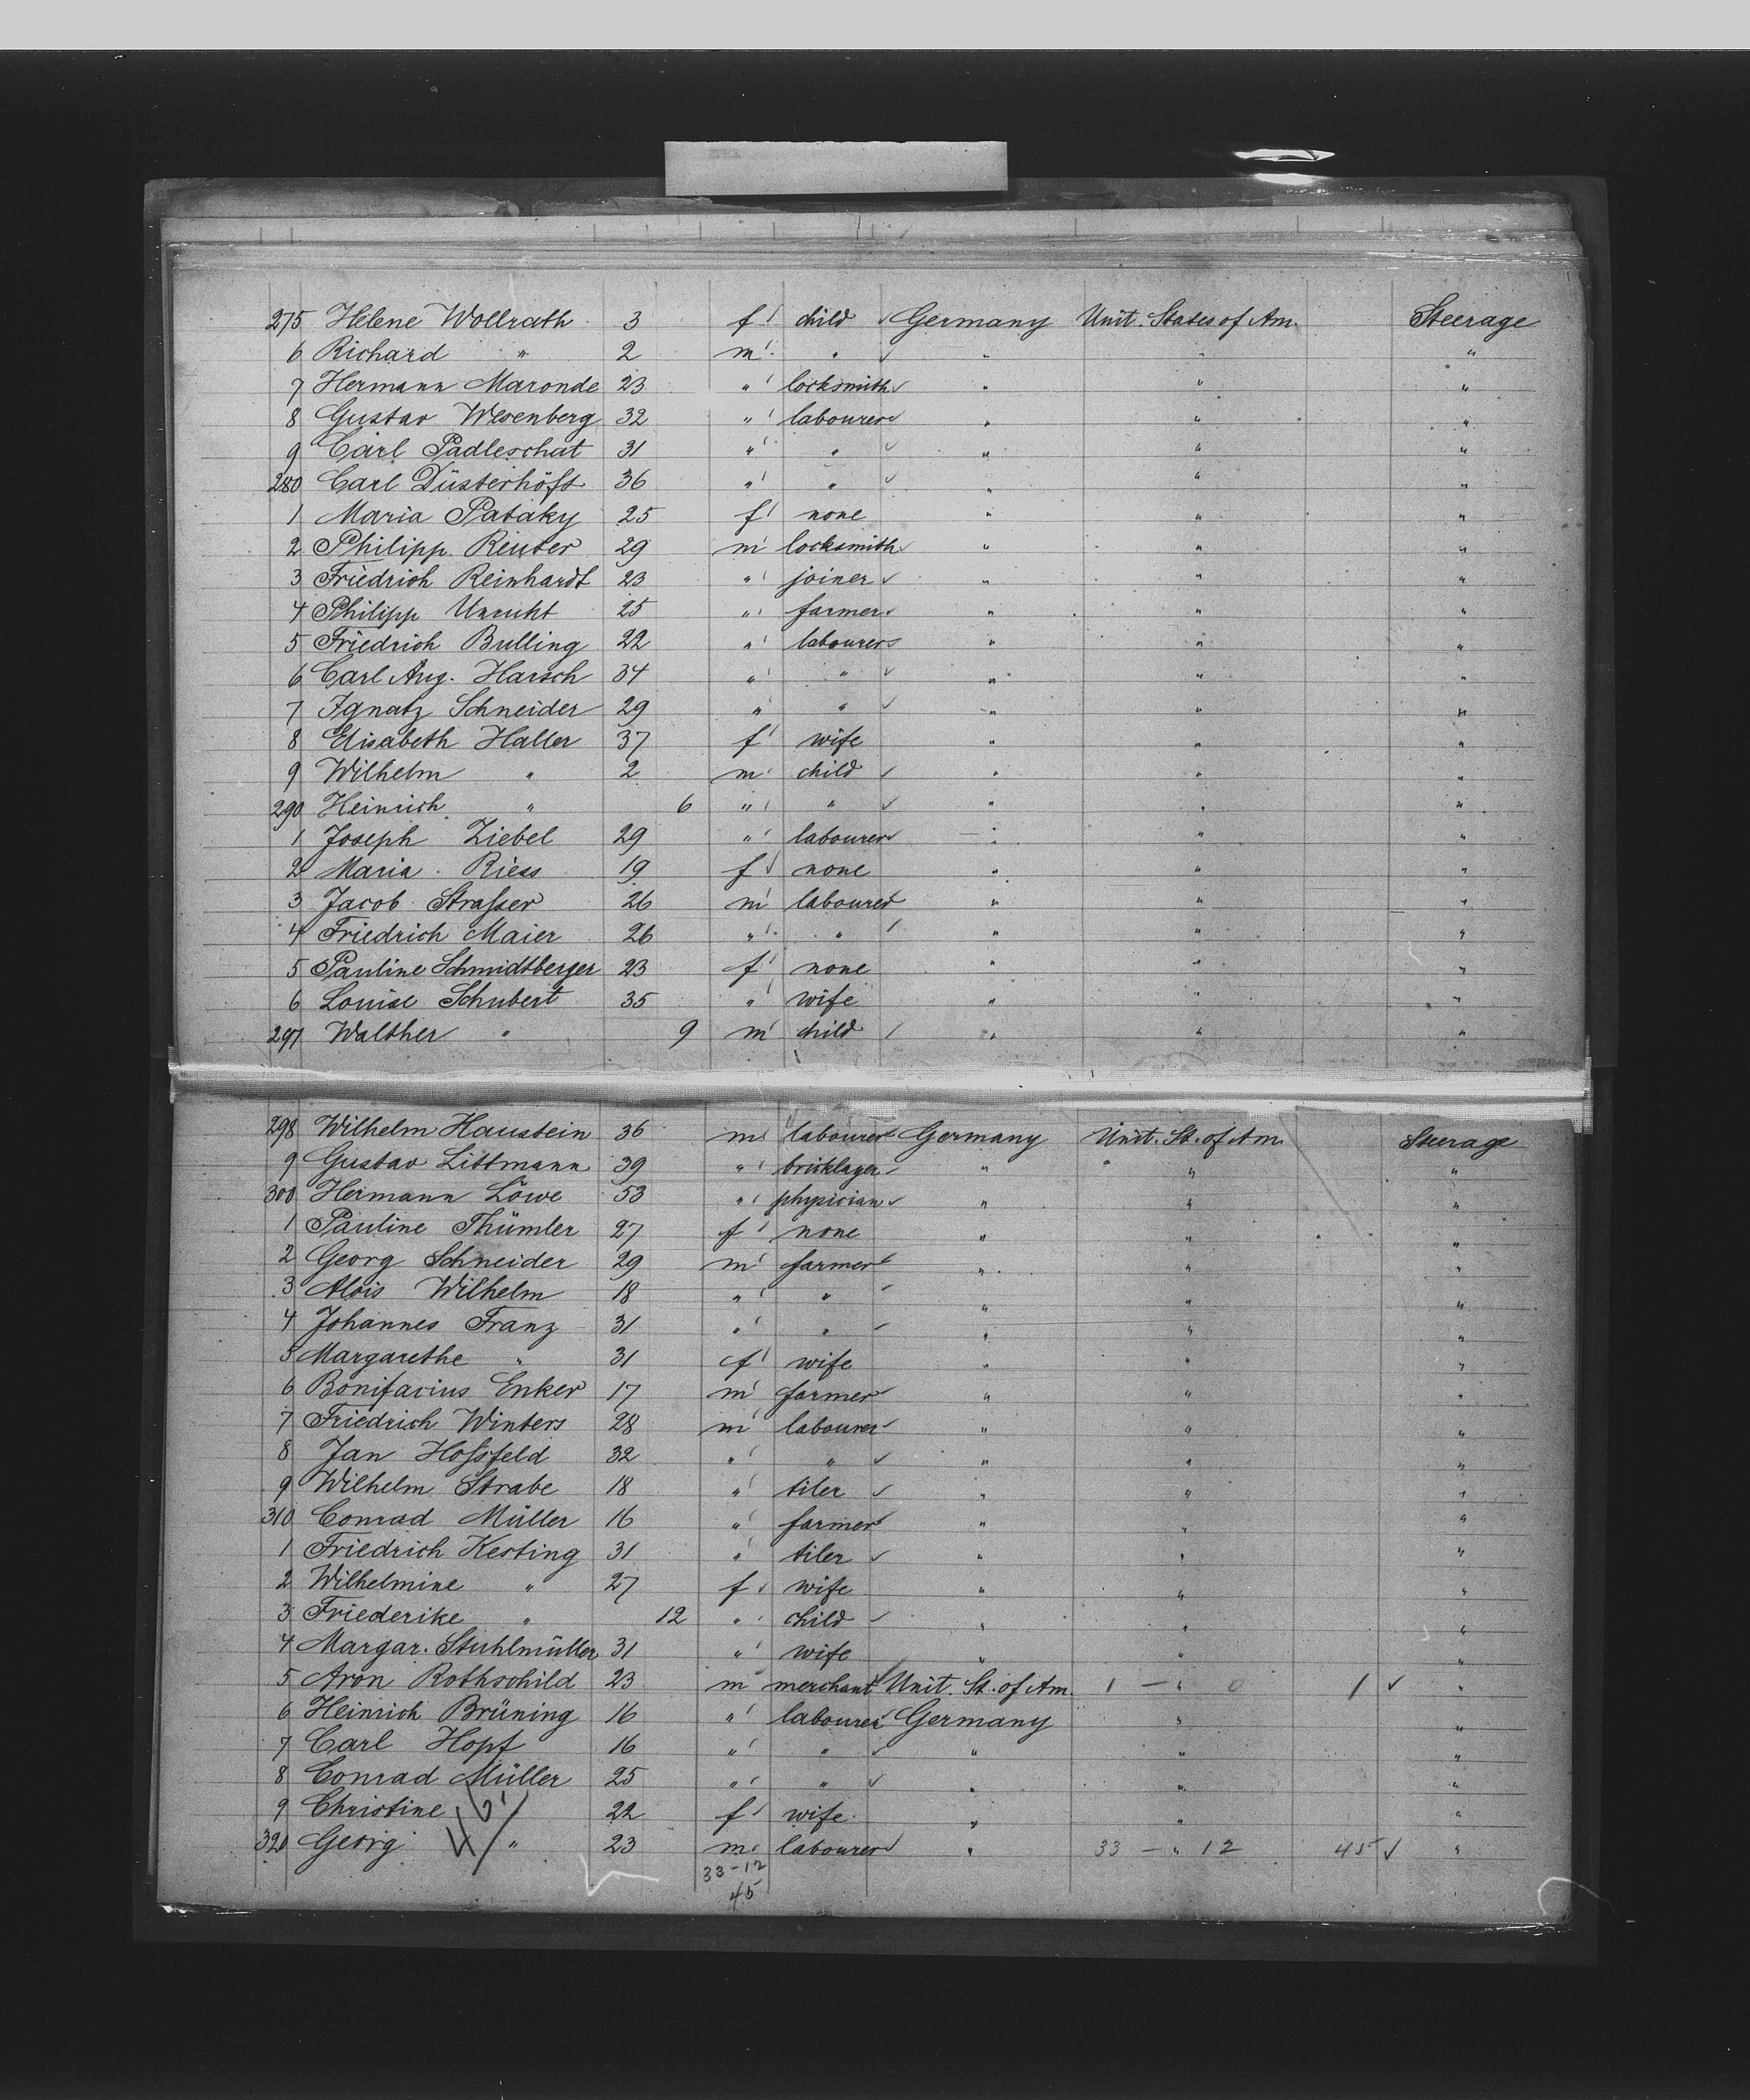 275 Helene Wollrath 3 f child Germany Unit. States of Am. Steerage
6 Richard " 2 m " " " "
7 Hermann Maronde 23 " locksmith " " "
8 Gustav Wesenberg 32 " labourer " " "
9 Carl Padleschat 31 " " " " "
280 Carl Düsterhöft 36 " " " " "
1 Maria Pataky 25 f none " " "
2 Philipp Reuter 29 m locksmith " " "
3 Friedrich Reinhardt 23 " joiner " " "
4 Philipp 25 " farmer " " "
5 Friedrich Bulling 22 " labourer " " "
6 Carl Aug. Harsch 34 " " " " "
7 Ignatz Schneider 29 " " " " "
8 Elisabeth Haller 37 f wife " " "
9 Wilhelm " 2 m child " " "
290 Heinrich " 6 " " " " "
1 Joseph Ziebel 29 " labourer " " "
2 Maria Riess 19 f none " " "
3 Jacob Straſser 26 m labourer " " "
4 Friedrich Maier 26 " " " " "
5 Pauline Schmidtberger 23 f none " " "
6 Louise Schubert 35 " wife " " "
297 Walther " 9 m child " " "
298 Wilhelm Haustein 36 m labourer Germany Unit. St. of Am. Steerage
9 Gustav Littmann 39 " bricklayer " " "
300 Hermann Löwe 53 " physician " " "
1 Pauline Thümler 27 f none " " "
2 Georg Schneider 29 m farmer " " "
3 Alois Wilhelm 18 " " " " "
4 Johannes Franz 31 " " " " "
5 Margarethe " 31 f wife " " "
6 Bonifacius Enker 17 m farmer " " "
7 Friedrich Winters 28 m labourer " " "
8 Jan Hoſsfeld 32 " " " " "
9 Wilhelm Strabe 18 " tiler " " "
310 Conrad Müller 16 " farmer " " "
1 Friedrich Kesting 31 " tiler " " "
2 Wilhelmine " 27 f wife " " "
3 Friederike " 12 " child " " "
4 Margar. Stuhlmüller 31 " wife " " "
5 Aron Rothschild 23 m merchant Unit. St. of Am. 1 — " 0 1 "
6 Heinrich Brüning 16 " labourer Germany " "
7 Carl Hopf 16 " " " " "
8 Conrad Müller 25 " " " " "
9 Christine " 22 f wife " " "
320 Georg " 23 m labourer " 33 — " 12 45 "
33-12
45